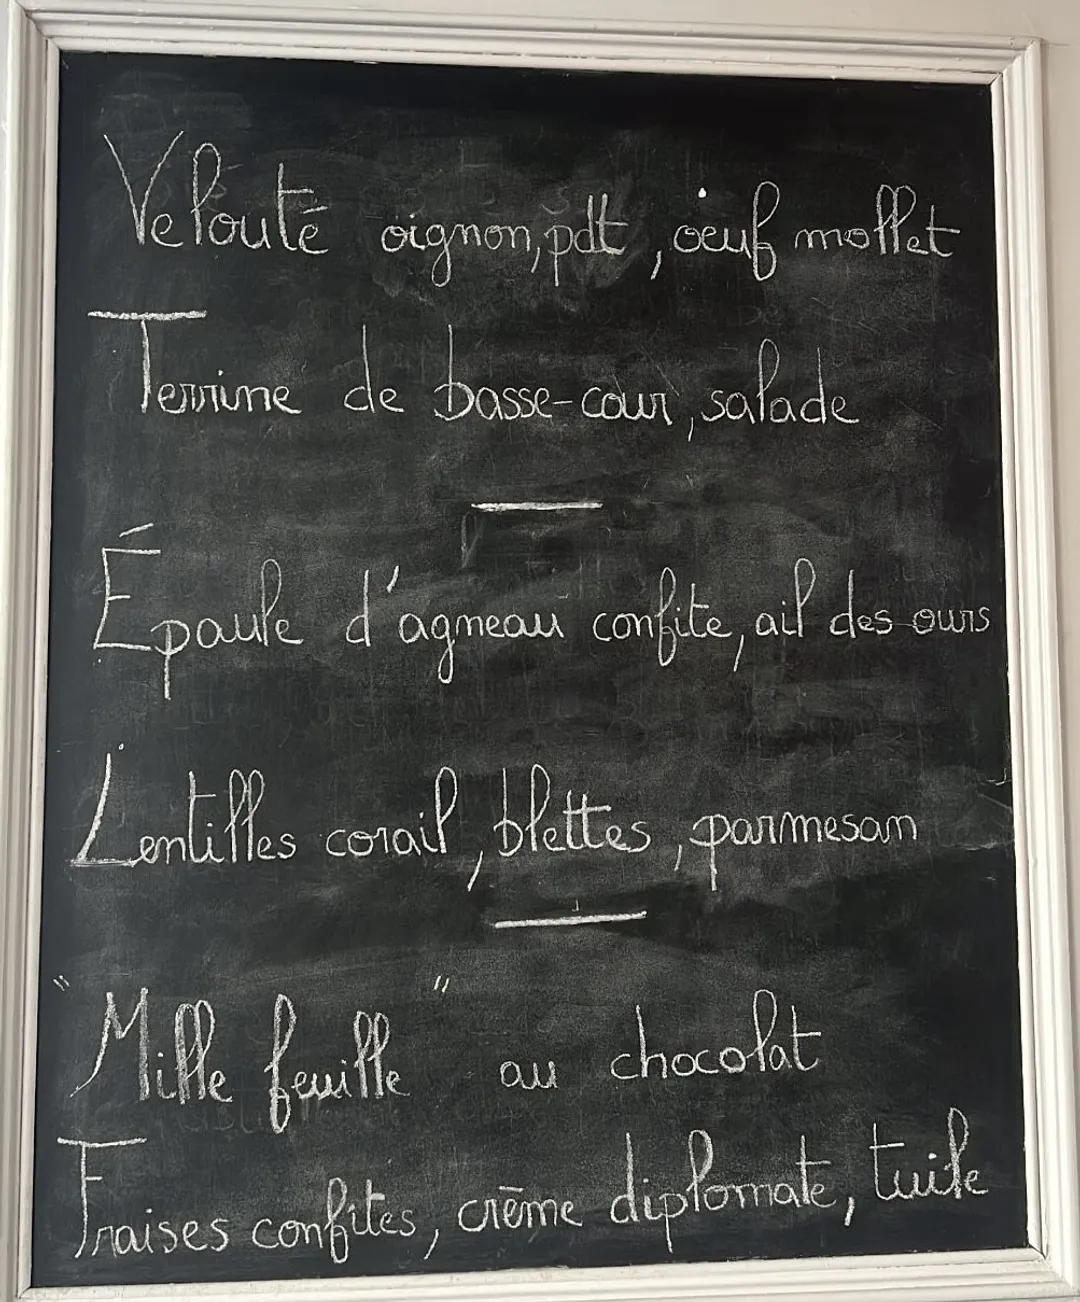 Velouté oignon, pdt, oeuf mollet
Terrine de basse-cour, salade
Épaule d'agneau confite, ail des ours
Lentilles corail, blettes, parmesan
"Mille feuille" au chocolat
Fraises confites, crème diplomate, tuile